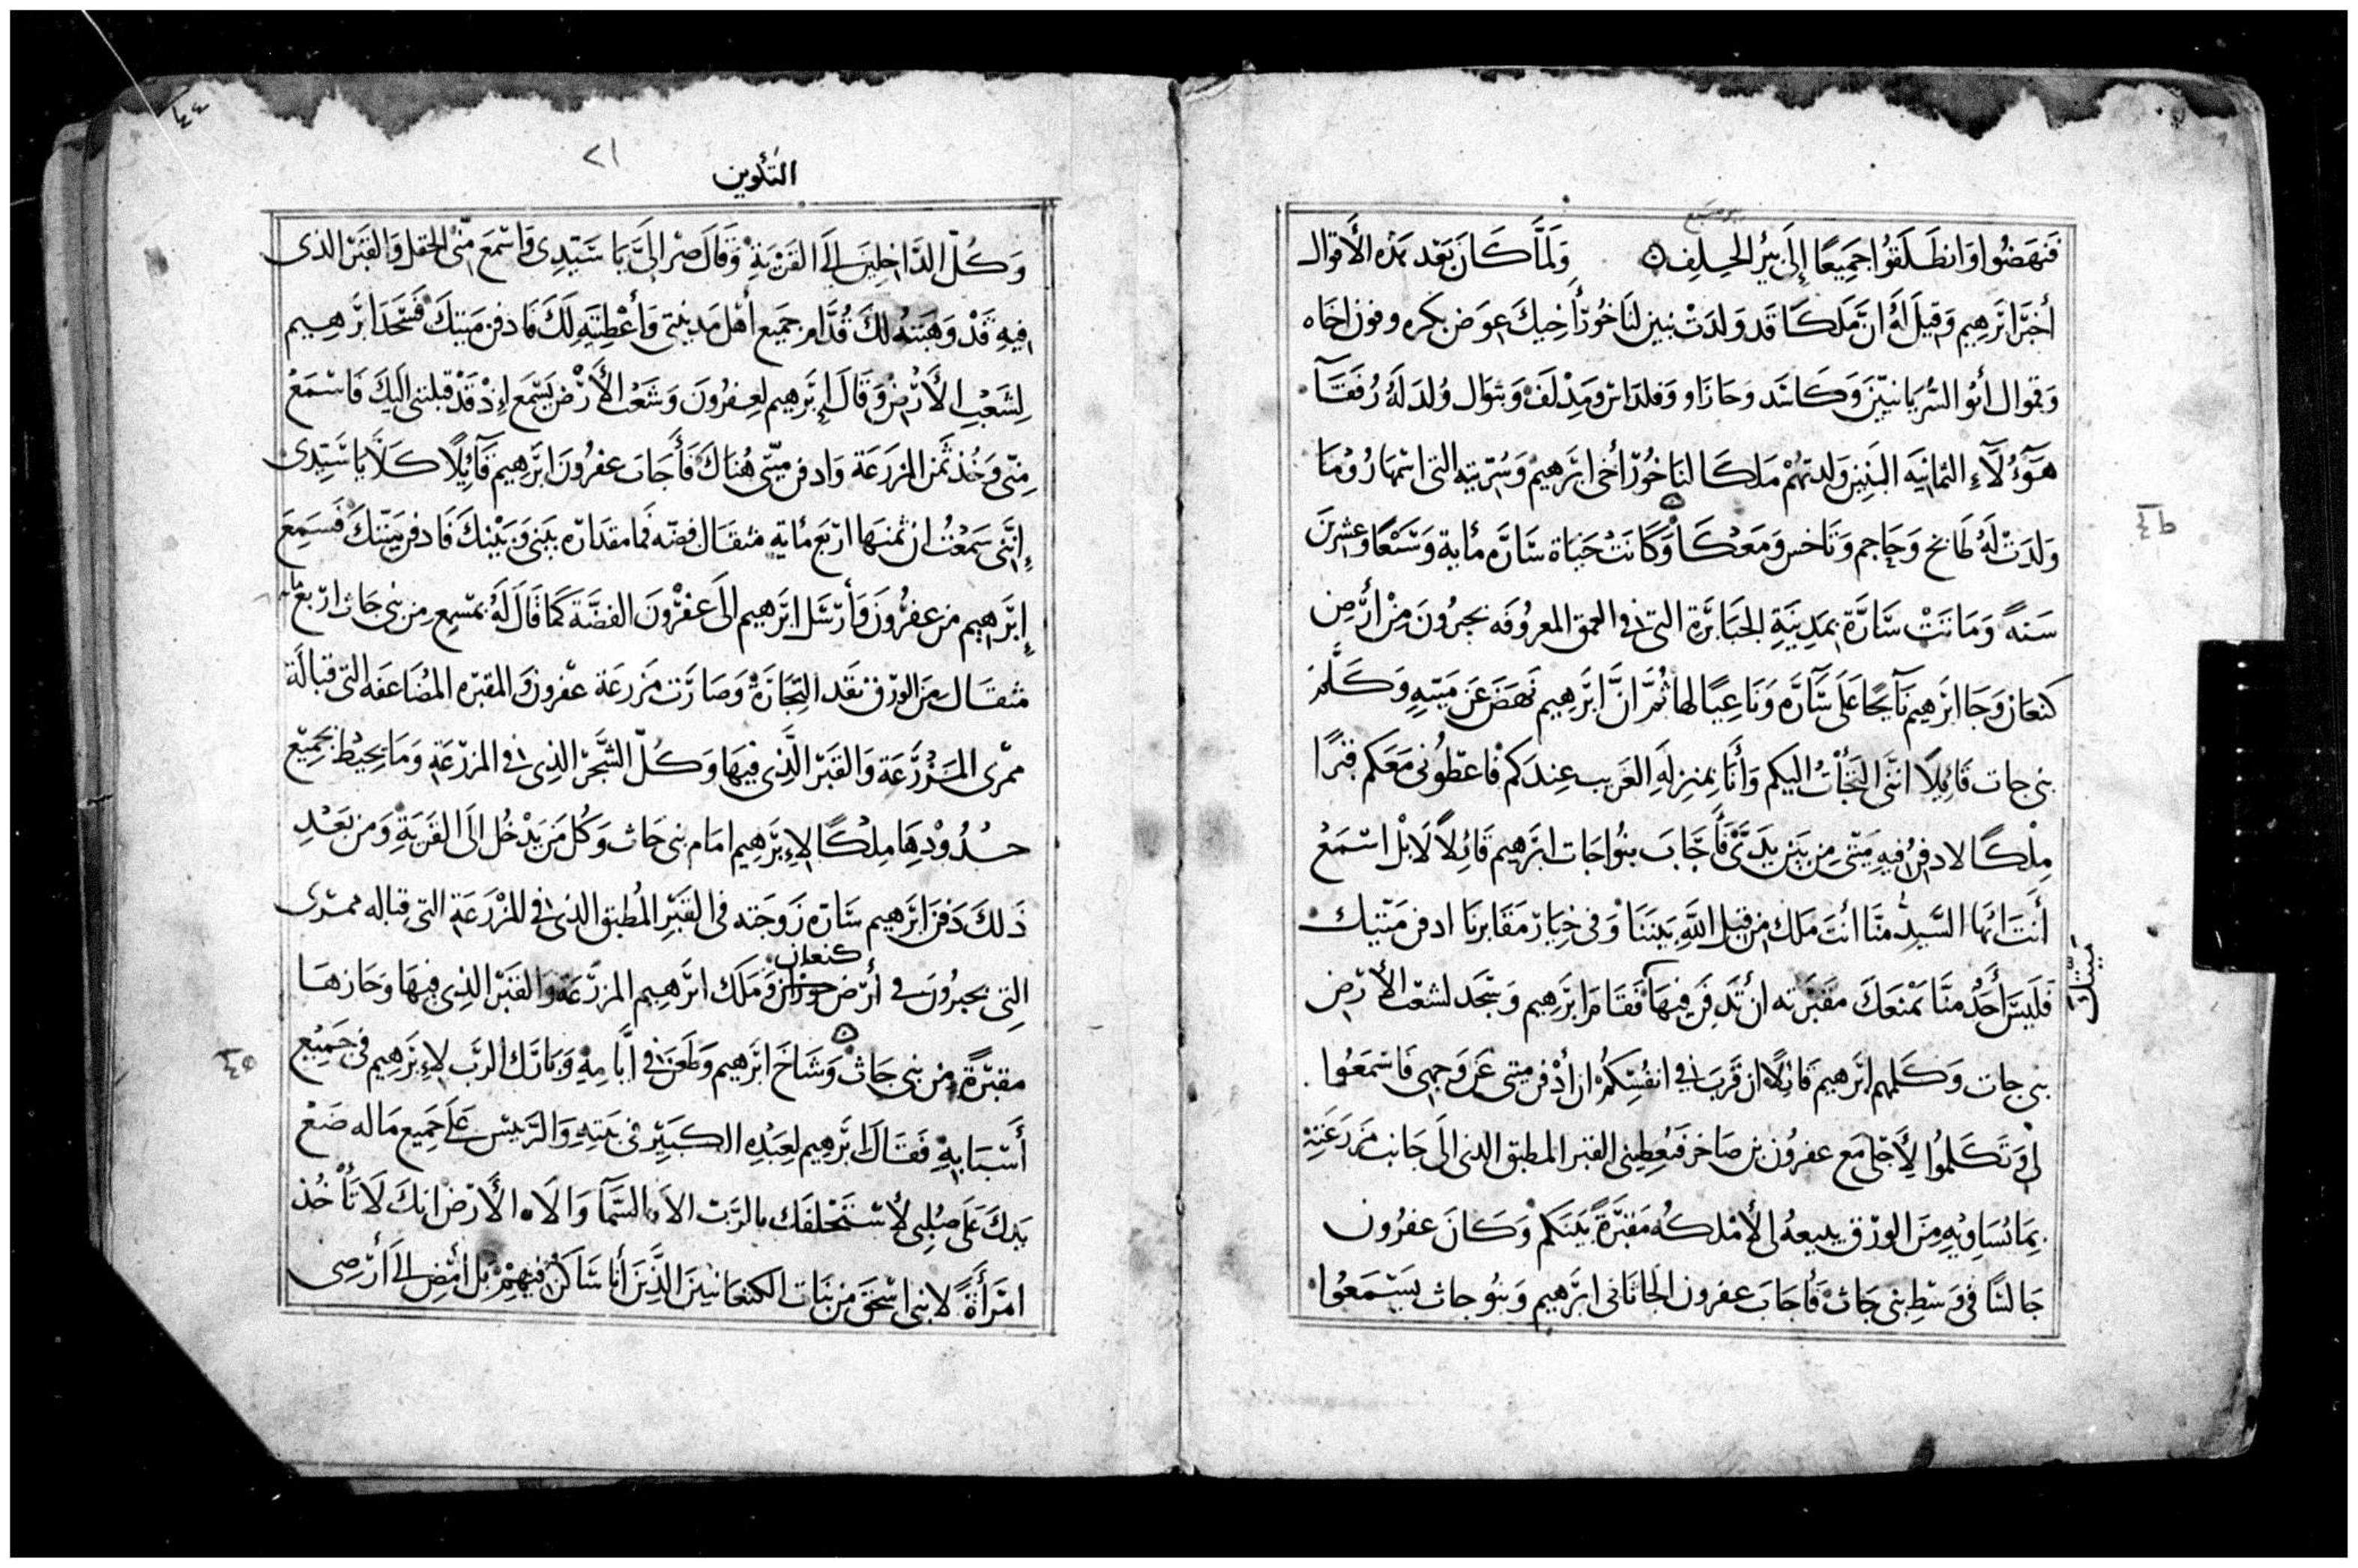 بير سبع
فَنهَضُوا وَانطَلَقُوا جَمِيعًا إِلَى بِئر الحِلِف وَلمَّا كَانَ بَعْد هَذه الأَقوال
أخبَر ابرَهِيم وَقِيلَ لهُ انَّ مَلكَا قد وَلدَتْ بنين لنَاخُور أخِيكَ عوَض بكره وفوز اخاه
وَقموال أبُو السُّريَانيّينَ وَكَاسَد وَحَازَاو وَفلدَاس ومِدْلَف وَبتوَال وُلدَ لَهُ رُفقَآ
هَؤُلَآءِ الثمانيَه البَنِين وَلدتهُمْ مَلكَا لنَاخُور أخى ابرَهيم وَسُرّيته التى اسْمهَا رُومَا
وَلدَتْ لهُ طَابخ وَجَاجم وَتَاخس وَمَعْكَا وَكَانَتْ حَيَاة سَارَّه مأية وَسَبْعًا وعشرين
سَنهً وَمَاتَتْ سَارَّة بمَدِينَةِ الجَبَابرَة التى فى العمق المعرُوفَه بحبرُونَ مِنْ أَرْض
كنعَان وَجَا ابرَهِيم نَآيحًا عَلَى سَآرَّه وَنَاعيًا لها ثمَّ انَّ ابرَهِيم نهَضَ عَن مَيته وَكَلَّم
بنى حات قَائِلًا اننَّى التجَأتُ اليكم وَأنَا بمنزلهِ الغَريب عِندَكم فاعطُونى مَعَكم قبْرًا
مِلْكًا لادفن فِيهِ مَيتّى مِن بَين يدَىَّ فَأجَابَ بنُوا حَات ابرَهيم قَائلاً لَا بْل اسْتمَعْ
أَنتَ ايُّهَا السَّيدِ مِنَّا أنتَ مَلك من قبَل اللَّهِ بَيننَا وَفى خيَار مَقَابرنَا ادفن مَيّتك
فَليسَ أحَدُ منَّا يمْنعَكَ مقبَرته ان تَدفِن فِيهَا فَقَام ابرَهِيم وَسَجد لشعْب الأَرْض
ميّتك
بنى حات وَكَلمهم ابرَهِيم قائِلًا ان قَربَ فى انفُسِكُمْ ان أدْفن ميتى عَن وَجهى فَاسْمَعُوا
لى وَتَكَلمُوا لِأَجْلى مَع عفرُون بن صَاخر فَيُعطِينى القبْر المطبق الذى الَى جَانب مَزرَعَتِهْ
بِمَا يُسَاوِيهِ مِنَ الورْق يبيعهُ لى لأمْلكهُ مَقبَرَةً بَينكمْ وَكَانَ عفرُون
جَالسًا فى وَسْطِ بنى حَاث فأجَابَ عفرون الحَاثانى ابرَهِيم وَبنُو حاث يسَتْمَعُوا
٢١
التكوين
وَكُلّ الدَّاخِلِينَ إلَى القَرْيَةْ وَقَالَ صرْ الىَّ يَا سَيّدِى وَاسْمَعَ منّى الحقل وَالقبْر الذى
فِيهِ قَدْ وَهَبتهُ لكَ قُدَّام جَميع أهْل مَدينتى وَأعْطيته لَكَ فَادفن مَيتكَ فَسَجدَ ابرَهِيم
لِشَعْبِ الأَرْض وَقَالَ إبرَهِيم لعِفرُونَ وَشَعْب الأَرْض يَسْمَع إذْ قَدْ قبلتنى اليَكَ فَاسْتمَعْ
مِنّى وَخُذ ثَمن المزرَعَة وَادفن ميّتى هُنَاكَ فَأَجَابَ عفرُونَ ابرَهيم قَآئِلًا كَلَّا يا سَيّدِى
إنَّنى سَمَعْتُ ان ثمنهَا اربَع مأية مثقَال فضّه فما مقدَاره بيَنى وَبَيْنكَ فَادفن مَيّتكَ فسَمِعَ
إبرَهِيم من عفرُونَ وَأرْسَل ابرَهيم الَى عفْرُونَ الفضَّة كَمَا قَالَ لهُ بمسْمِع مِن بنى حَاث اربَعمأ
مثقَال مِنَ الورْق نقد التِجَارَةْ وَصَارَت مَزرعَة عفْرون وَالمقبَره المضَاعَفَه التّى قبَالَة
ممْرى المَزْرَعَة وَالقَبْر الَّذِى فيهَا وَكُلّ الشَّجَر الذِى فى المزرَعَة وَمَا يحيْط بجَميْع
حدُودْهَا مِلْكًا لإِبرَهِيم امَام بنى حَاث وَكُل مَن يَدْخُل الَى القَريَةِ وَمن بَعْدِ
ذَلكَ دَفنَ ابرَهِيم سَارَه زَوجَته فى القَبْرِ المُطبق الذى فى المَزْرَعَةِ التى قباله ممْرى
كنعان
التِى بحبرُونَ فى أرض حوران وَمَلَكَ ابرَهِيم المزرَعَة وَالقَبْر الذِى فِيهَا وَحَازهَا
مقبَرَةً من بنى حَاث وَشَاخَ ابرَهِيم وَطَعَنَ فى أيَّامِهْ وَبَارَك الرَّب لإِبرَهِيم فى جَمِيْع
أسْبَابِهِ فَقَال ابرَهِيم لعِبْدِه الكبَيْر فى بَيتِهِ وَالرَّيس عَلَى جَمِيع مَاله ضَعْ
يَدكَ عَلَى صُلِبى لأسْتَحْلفَك بالرَّبّ الاه السَّمآ وَالاه الأَرْض انكَ لَا تَأْخُذ
امْرَأَةً لابنى اسْحَقَ مِن بَنَات الكنعَانيينَ الذَّينَ أنا سَاكنُ فيهمْ بَل أمْضِ إلَى أَرْضى